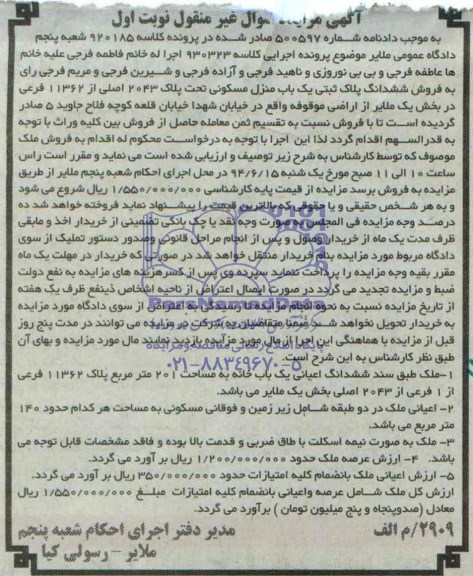 آگهی مزایده اموال غیر منقول نوبت اول
به موجب دادنامه شماره ۵۰۰۵۹۷ صادر شده در پرونده کلاسه ۹۲۰۱۸۵ شعبه پنجم
دادگاه عمومی ملایر موضوع پرونده اجرایی کلاسه ۹۳۰۳۲۳ اجرا له خانم فاطمه فرجی علیه خانم
ها عاطفه فرجی و بی بی نوروزی و ناهید فرجی و آزاده فرجی و شیرین فرجی و مریم فرجی رای
به فروش ششدانگ پلاک ثبتی یک باب منزل مسکونی تحت پلاک ۲۰۴۳ اصلی از ۱۱۳۶۲ فرعی
در بخش یک ملایر از اراضی موقوفه واقع در خیابان شهدا خیابان قلعه کوچه فلاح جاوید ۵ صادر
گردیده است تا با فروش نسبت به تقسیم ثمن معامله حاصل از فروش بین کلیه وراث با توجه
به قدرالسهم اقدام گردد لذا این اجرا با توجه به درخواست محکوم له اقدام به فروش ملک
موصوف که توسط کارشناس به شرح زیر توصیف و ارزیابی شده است می نماید و مقرر است راس
ساعت ۱۰ الی ۱۱ صبح مورخ یک شنبه ۹۴/۶/۱۵ در محل اجرای احکام شعبه پنجم ملایر از طریق
مزایده به فروش برسد مزایده از قیمت پایه کارشناسی ۱/۵۵۰/۰۰۰/۰۰۰ ریال شروع می شود
و به هر شخص حقیقی و یا حقوقی که بالاترین قیمت را پیشنهاد نماید فروخته خواهد شد ده
درصد وجه مزایده فی المجلس به صورت وجه نقد یا چک بانکی تضمینی از خریدار اخذ و مابقی
ظرف مدت یک ماه از خریدار وصول و پس از انجام مراحل قانونی وصدور دستور تملیک از سوی
دادگاه مربوط مورد مزایده بنام خریدار منتقل خواهد شد در صورتی که خریدار در مهلت یک ماه
مقرر بقیه وجه مزایده را پرداخت ننماید سپرده وی پس از کسرهزینه های مزایده به نفع دولت
ضبط و مزایده تجدید می گردد در صورت ایصال اعتراض از ناحیه اشخاص ذینفع ظرف یک هفته
از تاریخ مزایده نسبت به نحوه انجام مزایده تا رسیدگی به اعتراض از سوی دادگاه مورد مزایده
به خریدار تحویل نخواهد شد. ضمنا متقاضیان به شرکت در مزایده می توانند در مدت پنج روز
قبل از مزایده با هماهنگی این اجرا از مال مورد مزایده بازدید نمایند مال مورد مزایده و بهای آن
طبق نظر کارشناس به این شرح است.
پایگاه اطلاع رسانی مناقصه و مزایده
۰۲۱-۸۸۳۴۹۶۷۰-۵
۱-ملک طبق سند ششدانگ اعیانی یک باب خانه به مساحت ۲۰۱ متر مربع پلاک ۱۱۳۶۲ فرعی
از ۱ فرعی از ۲۰۴۳ اصلی بخش یک ملایر می باشد.
۲- اعیانی ملک در دو طبقه شامل زیر زمین و فوقانی مسکونی به مساحت هر کدام حدود ۱۴۰
متر مربع می باشد.
۳- ملک به صورت نیمه اسکلت با طاق ضربی و قدمت بالا بوده و فاقد مشخصات قابل توجه می
باشد. ۴- ارزش عرصه ملک حدود ۱/۲۰۰/۰۰۰/۰۰۰ ریال بر آورد می گردد.
۵- ارزش اعیانی ملک بانضمام کلیه امتیازات حدود ۳۵۰/۰۰۰/۰۰۰ ریال بر آورد می گردد.
ارزش کل ملک شامل عرصه واعیانی بانضمام کلیه امتیازات مبلغ ۱/۵۵۰/۰۰۰/۰۰۰ ریال
معادل (صدوپنجاه و پنج میلیون تومان ) برآورد می گردد.
۲۹۰۹/م الف
مدیر دفتر اجرای احکام شعبه پنجم
ملایر - رسولی کیا